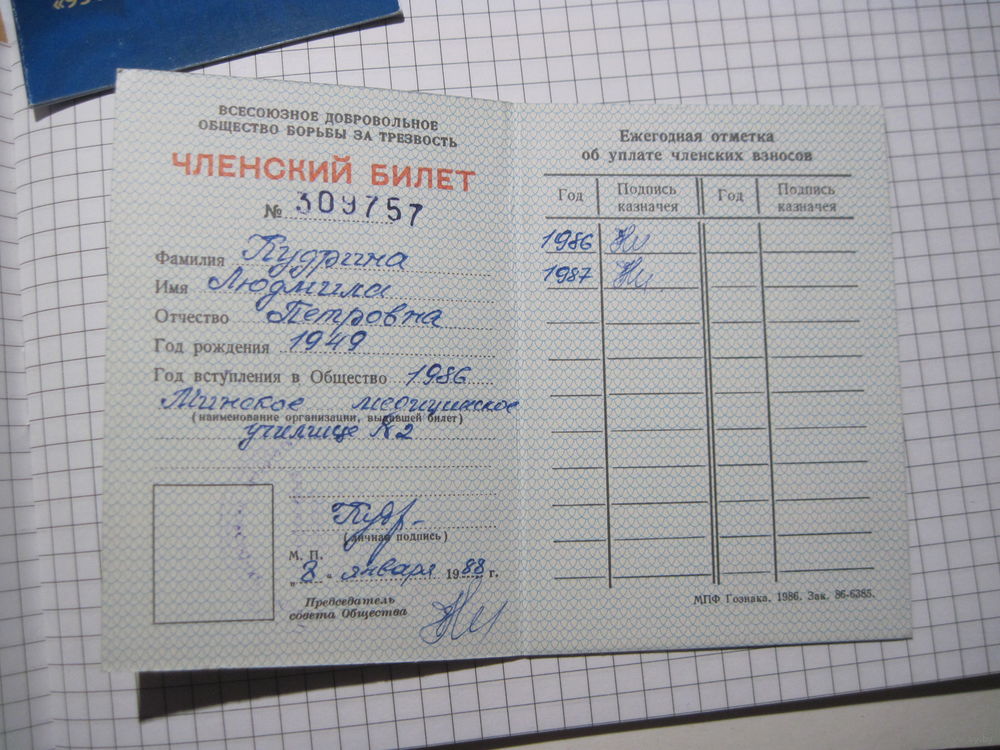 ВСЕСОЮЗНОЕ ДОБРОВОЛЬНОЕ
ОБЩЕСТВО БОРЬБЫ ЗА ТРЕЗВОСТЬ
ЧЛЕНСКИЙ БИЛЕТ
№ 309757
Фамилия Пудрина
Имя Людмила
Отчество Петровна
Год рождения 1949
Год вступления в Общество 1986
Минское медицинское
(наименование организации, выдавшей билет)
училище №2
Пудр-
(личная подпись)
М. П.
„8" января 1988 г.
Председатель
совета Общества
Ежегодная отметка
об уплате членских взносов
Год Подпись казначея Год Подпись казначея
1986
1987
МПФ Гознака. 1986. Зак. 86-6385.